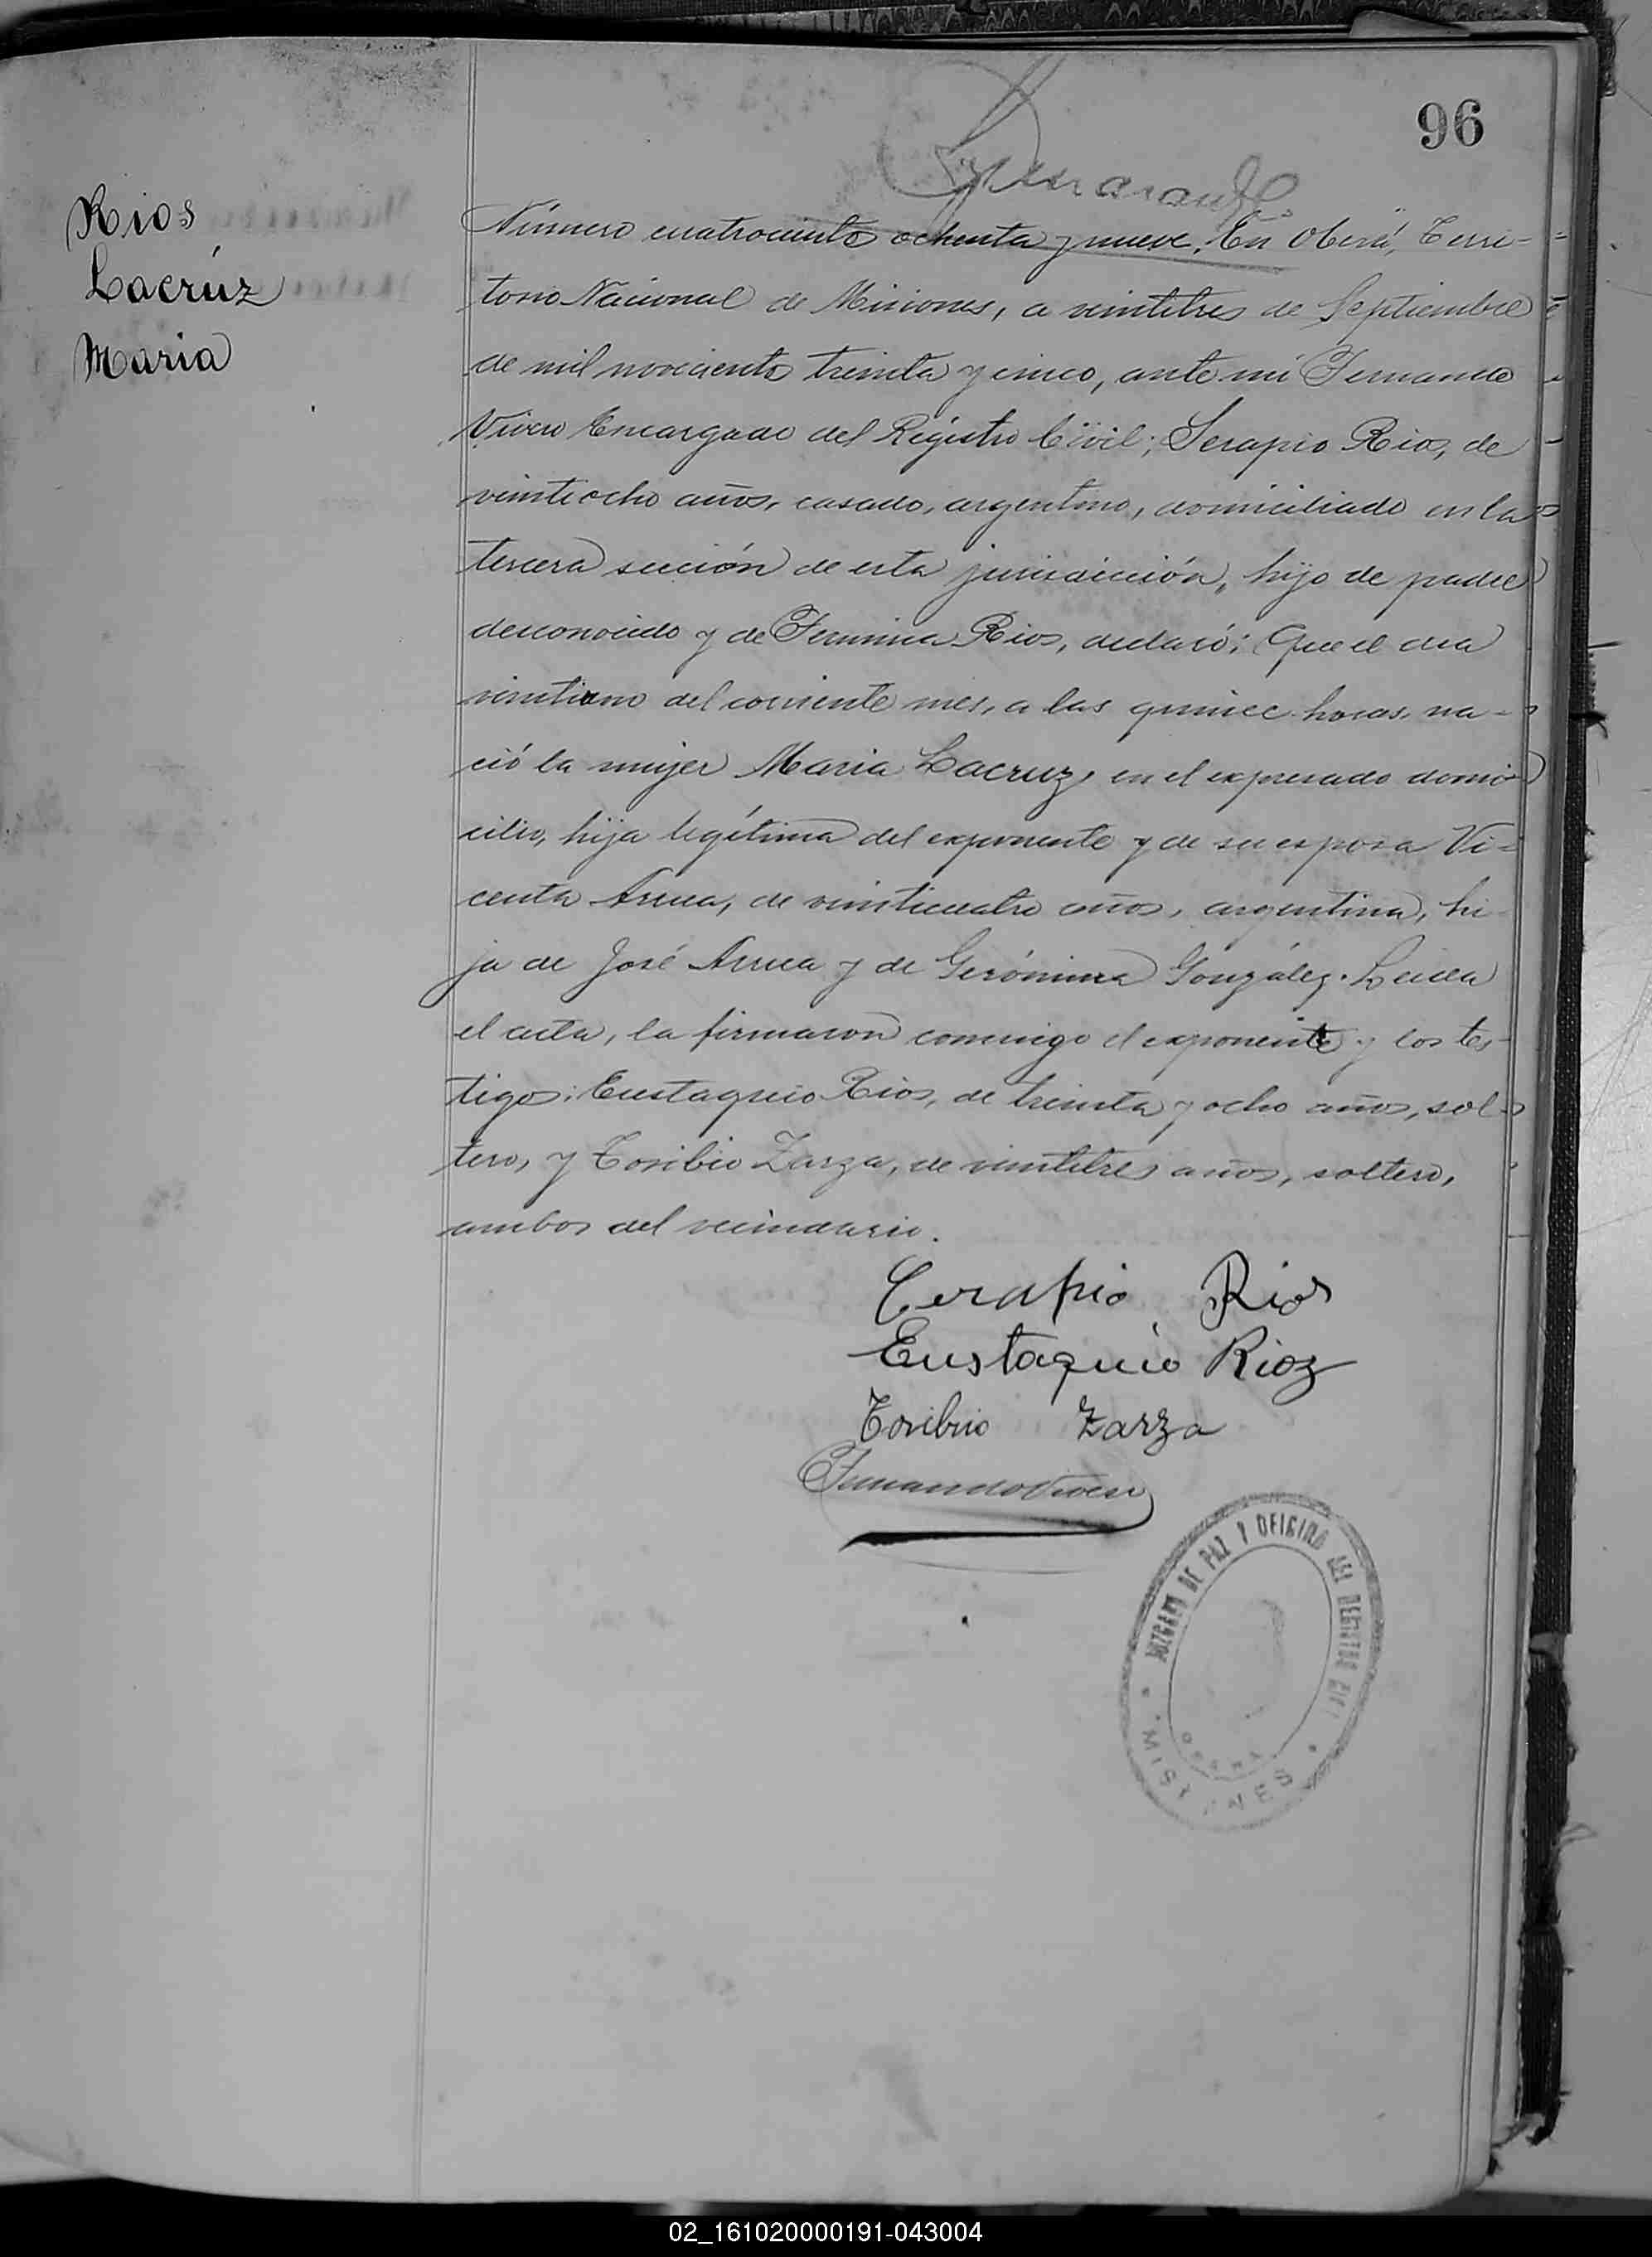 96
Rios
Lacrúz
Maria
Número cuatrocientos ochenta y nueve. En Oberá, Terri-
torio Nacional de Misiones, a veintitres de Septiembre
de mil novecientos treinta y cinco, ante mi Fernando
Vivero Encargado del Registro Civil; Serapio Rios, de
veintiocho años, casado, argentino, domiciliado en la
tercera sección de esta jurisdicción, hijo de padre
desconocido y de Fermina Rios, declaró: Que el dia
veintiuno del corriente mes, a las quince horas, na-
ció la mujer Maria Lacruz, en el expresado domi-
cilio, hija legítima del exponente y de su esposa Vi-
centa Arrua, de veinticuatro años, argentina, hi-
ja de José Arrua y de Gerónima González. Leida
el acta, la firmaron conmigo el exponente y los tes-
tigos: Eustaquio Rios, de treinta y ocho años, sol-
tero, y Toribio Zarza, de veintitres años, soltero,
ambos del vecindario.
Cerapio Rios
Eustaquio Rioz
Toribio Zarza
Fernando Vivero
JUZGADO DE PAZ Y OFICINA DEL REGISTRO CIVIL
OBERA
MISIONES
02_161020000191-043004